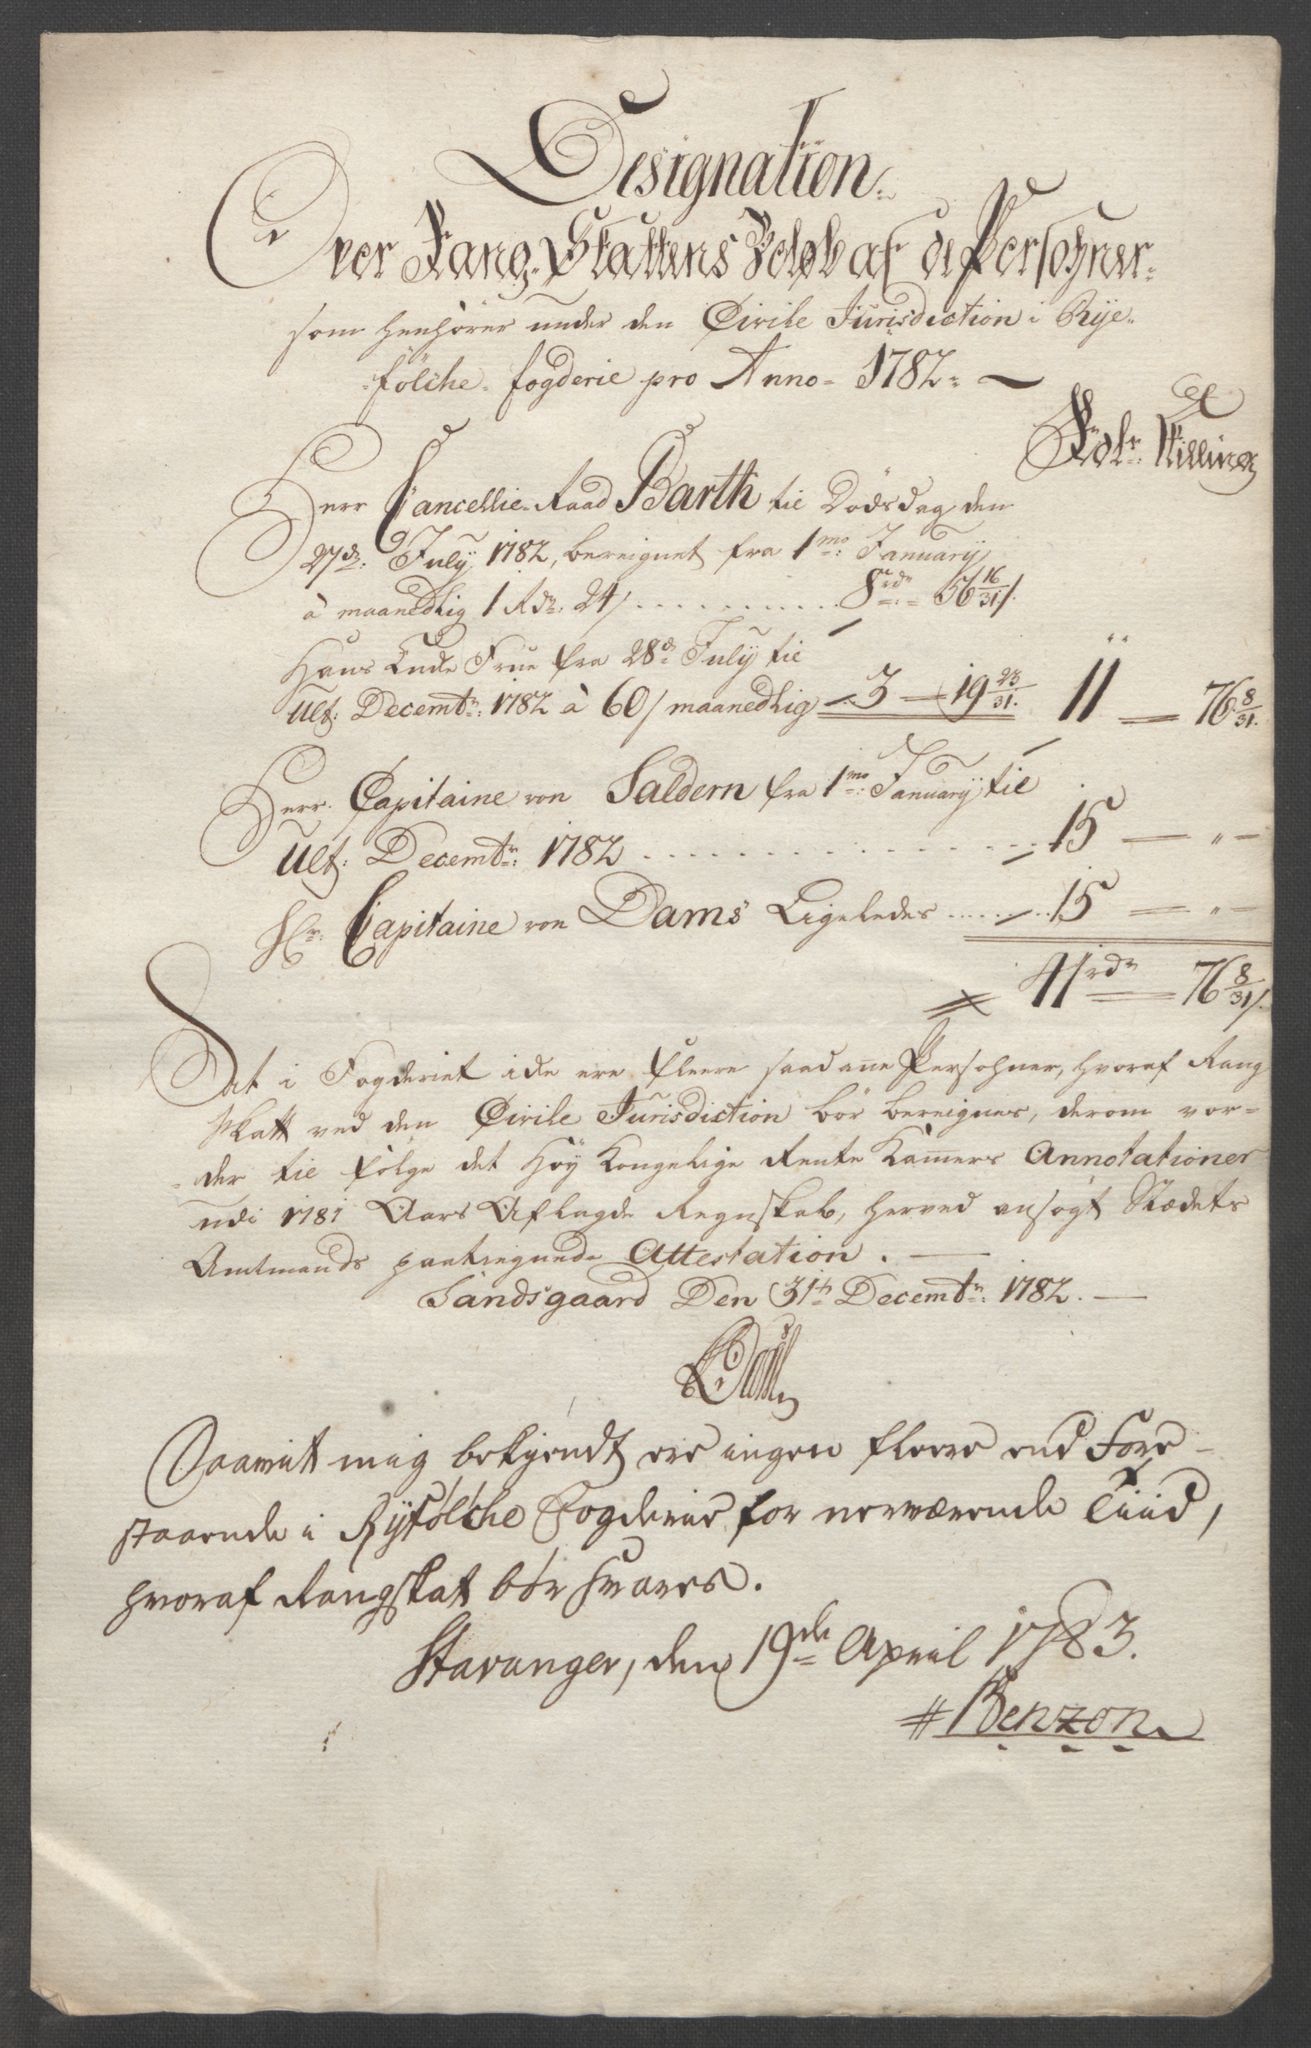 Designation
Over Rang-Skattens Beløb af de Persohner
som henhører under den Civile Jurisdiction i Rye-
fölche fogderie pro Anno 1782
Rdlr Skilling
Herr Cancellie-Raad Barth til Dödsdag den
27de July 1782, bereignet fra 1mo January
à maanedlig 1 Rdr 24 s ... 8 rdr 56 16/31 s
Hans Enke Frue fra 28de July til
Ult: Decembr: 1782 à 60 s maanedlig 3 - 19 23/31. 11 - 76 8/31.
Herr Capitaine von Saldern fra 1mo January til
Ult: Decembr: 1782 ... 15 - " -
Hr: Capitaine von Dams Ligeledes ... 15 - " -
41 rdr 76 8/31 s
At i Fogderiet icke ere fleere saadanne Persohner, hvoraf Rang
skatt ved den Civile Jurisdiction bör bereignes, derom vor-
der til fölge det Höy Kongelige Rente Kamers Annotationer
udi 1781 Aars Aflagde Regnskab, herved ansögt Stædets
Amtmands paategnede Attestation.
Sandsgaard Den 31te Decembr: 1782.
Saavit mig bekjendt ere ingen fleere end Fore-
staaende i Ryfölche Fogderie for nerværende Tiid,
hvoraf Rangskat bör svares.
Stavanger, den 19de April 1783.
Benzon